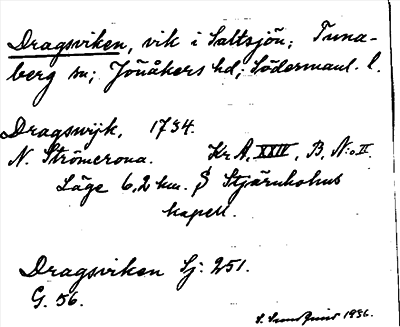 Dragsviken, vik i Saltsjön; Tuna-
berg sn; Jönåkers hd; Södermanl. l.
Dragswijk, 1734.
N. Strömcrona. Kr. A, XXIV, B, N:o II.
Läge 6,2 km. S Stjärnholms
kapell.
Dragsviken Sj: 251.
G. 56.
S. 1936.